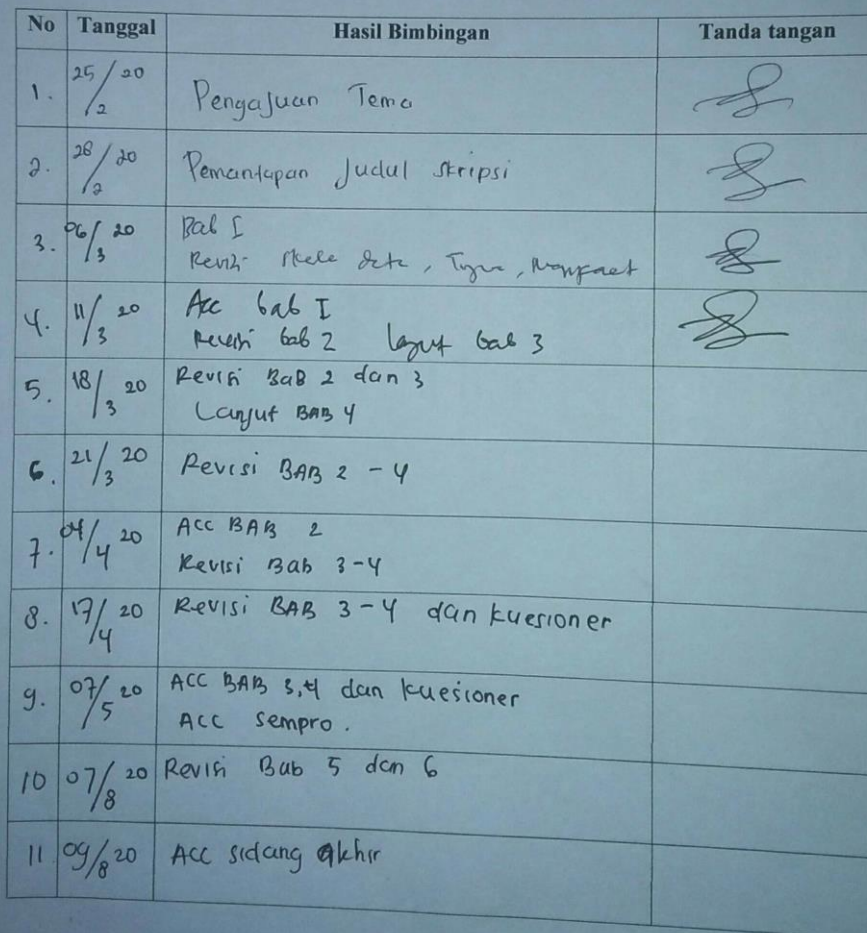 No Tanggal Hasil Bimbingan Tanda tangan
1. 25/2 20 Pengajuan Tema
2. 28/2 20 Pemantapan Judul skripsi
3. 06/3 20 Bab I
Revisi
4. 11/3 20 Acc bab I
Revisi bab 2 lanjut bab 3
5. 18/3 20 Revisi BaB 2 dan 3
Lanjut BAB 4
6. 21/3 20 Revisi BAB 2 - 4
7. 04/4 20 ACC BAB 2
Revisi Bab 3-4
8. 17/4 20 Revisi BAB 3-4 dan kuesioner
9. 07/5 20 ACC BAB 3,4 dan kuesioner
ACC sempro.
10 07/8 20 Revisi Bab 5 dan 6
11 09/8 20 ACC sidang akhir